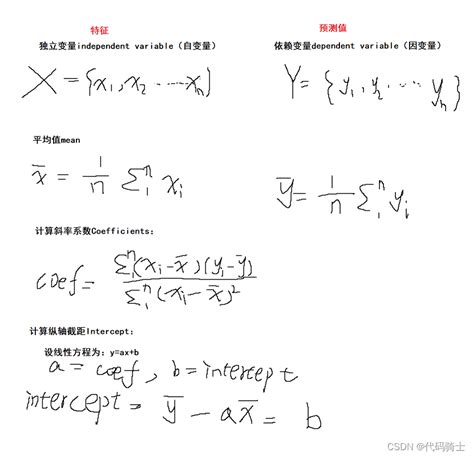 特征
预测值
独立变量independent variable（自变量）
依赖变量dependent variable（因变量）
X = {x₁, x₂ ⋯ xₙ}
Y = {y₁, y₂, ⋯ yₙ}
平均值mean
x̄ = 1/n Σ₁ⁿ xᵢ
ȳ = 1/n Σ₁ⁿ yᵢ
计算斜率系数Coefficients：
coef = Σ₁ⁿ(xᵢ-x̄)(yᵢ-ȳ) / Σ₁ⁿ(xᵢ-x̄)²
计算纵轴截距Intercept；
设线性方程为：y=ax+b
a = coef, b = intercept
intercept = ȳ - ax̄ = b
CSDN @代码骑士